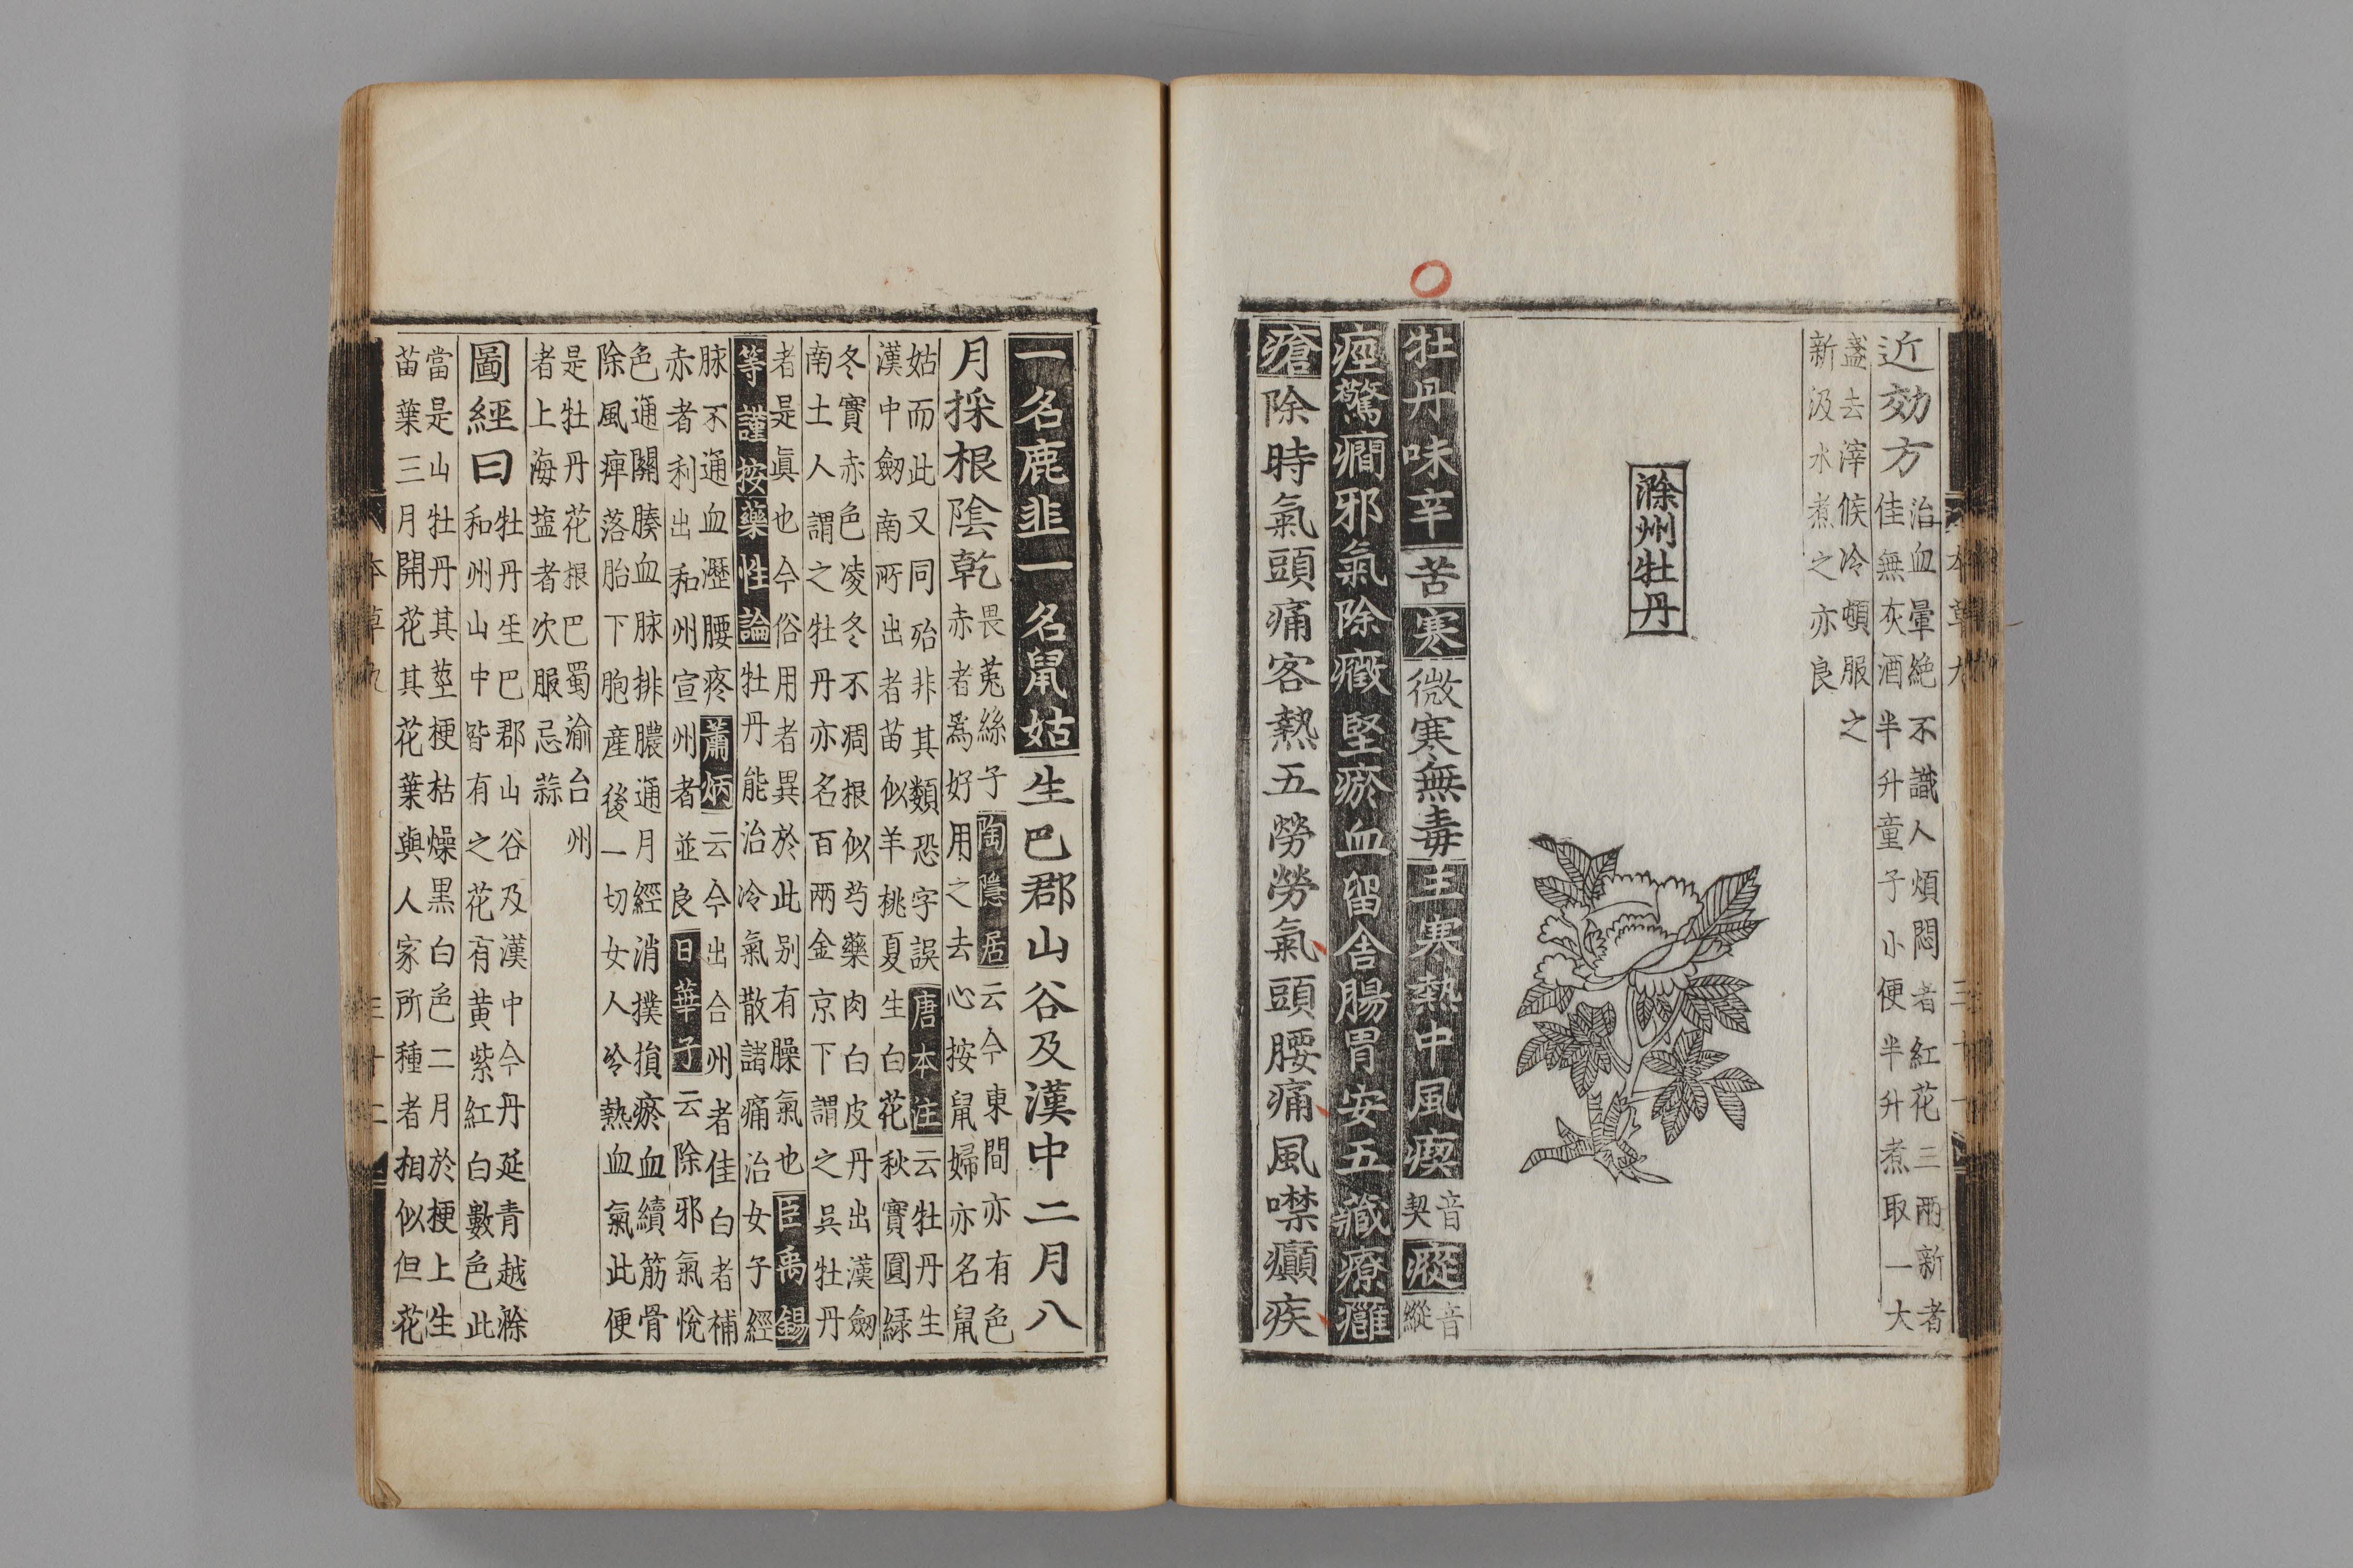 近効方
治血暈絶不識人煩悶者紅花三兩新者
佳無灰酒半升童子小便半升煮取一大
盞去滓候冷頓服之
新汲水煮之亦良
滁州牡丹
牡丹味辛苦寒微寒無毒主寒熱中風瘈
音
契
瘲
音
縱
痙驚癇邪氣除癥堅瘀血留舍腸胃安五藏療癰
瘡除時氣頭痛客熱五勞勞氣頭腰痛風噤癲疾
一名鹿韭一名鼠姑生巴郡山谷及漢中二月八
月採根陰乾
畏菟絲子陶隱居云今東間亦有色
赤者爲好用之去心按鼠婦亦名鼠
姑而此又同殆非其類恐字誤唐本注云牡丹生
漢中劒南所出者苗似羊桃夏生白花秋實圓緑
冬實赤色凌冬不凋根似芍藥肉白皮丹出漢劒
南土人謂之牡丹亦名百兩金京下謂之吳牡丹
者是眞也今俗用者異於此別有臊氣也臣禹錫
等謹按藥性論牡丹能治冷氣散諸痛治女子經
脉不通血瀝腰疼蕭炳云今出合州者佳白者補
赤者利出和州宣州者並良日華子云除邪氣悅
色通關腠血脉排膿通月經消撲損瘀血續筋骨
除風痺落胎下胞産後一切女人冷熱血氣此便
是牡丹花根巴蜀渝台州
者上海鹽者次服忌蒜
圖經曰
牡丹生巴郡山谷及漢中今丹延青越滁
和州山中皆有之花有黄紫紅白數色此
當是山牡丹其莖梗枯燥黒白色二月於梗上生
苗葉三月開花其花葉與人家所種者相似但花